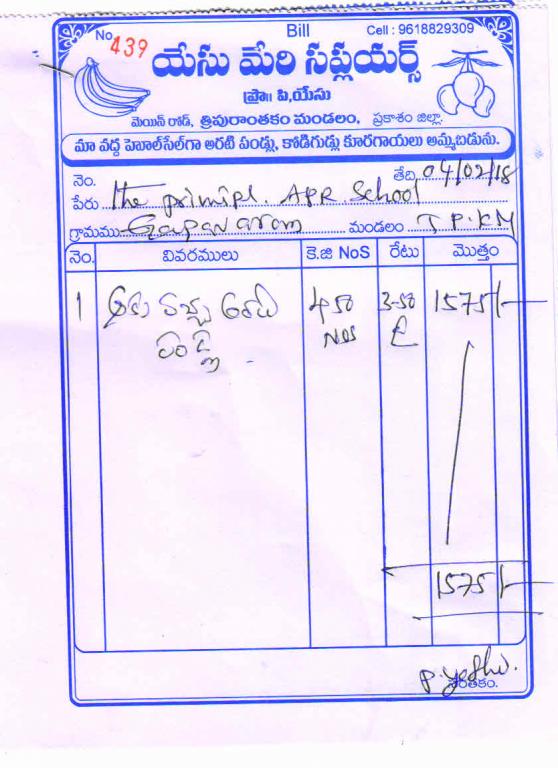 Bill
No 439
Cell : 9618829309
యేసు మేరి సప్లయర్స్
ప్రొ॥ పి.యేసు
మెయిన్ రోడ్, త్రిపురాంతకం మండలం, ప్రకాశం జిల్లా.
మా వద్ద హెుాల్‌సేల్‌గా అరటి పండ్లు, కోడిగుడ్లు కూరగాయలు అమ్మబడును.
నెం. తేది 04/02/18
పేరు The principl. APR. School
గ్రామము మండలం T P. KM
నెం. వివరములు కె.జి NoS రేటు మొత్తం
1 అరటి 450 3-50 1575/-
పండ్లు NOS
1575/-
P. Yeshu.
సంతకం.